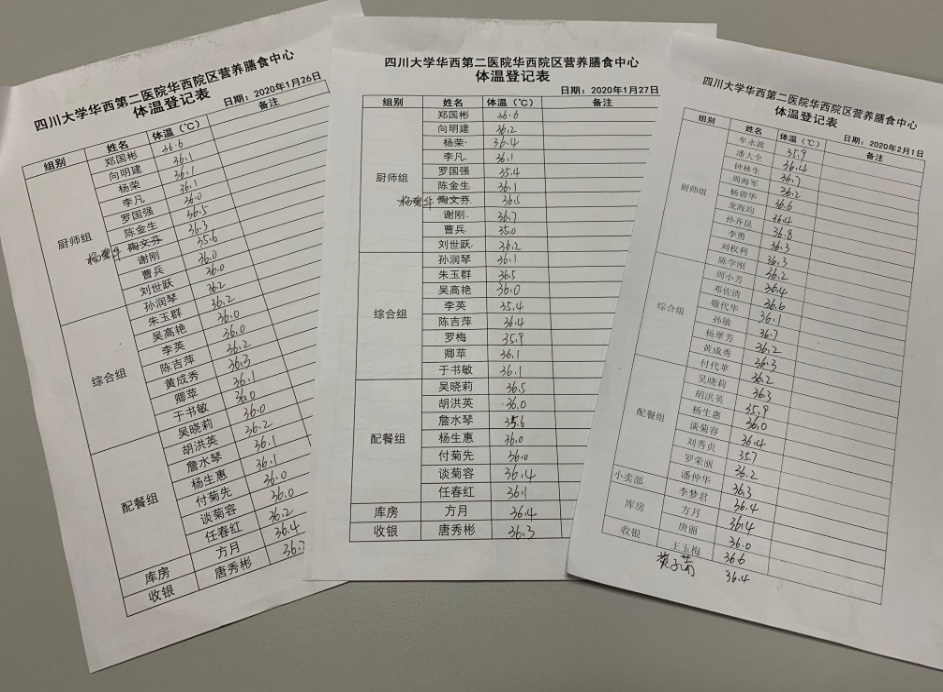 四川大学华西第二医院华西院区营养膳食中心
体温登记表
日期：2020年1月26日
组别 姓名 体温（℃） 备注
厨师组
郑国彬 36.6
向明建 36.1
杨荣 36.1
李凡 36.1
罗国强 36.0
陈金生 36.5
杨碧华 陶文芬 36.3
谢刚 35.6
曹兵 36.0
刘世跃 36.0
综合组
孙润琴 36.2
朱玉群 36.2
吴高艳 36.0
李英 36.0
陈吉萍 36.2
黄成秀 36.3
卿苹 36.1
于书敏 36.0
配餐组
吴晓莉 36.0
胡洪英 36.2
詹水琴 36.1
杨生惠 36.1
付菊先 36.0
谈菊容 36.0
任春红 36.2
库房 方月 36.4
收银 唐秀彬 36.7
四川大学华西第二医院华西院区营养膳食中心
体温登记表
日期：2020年1月27日
组别 姓名 体温（℃） 备注
厨师组
郑国彬 36.6
向明建 36.2
杨荣 36.4
李凡 36.1
罗国强 35.4
陈金生 36.1
杨碧华 陶文芬 36.5
谢刚 36.7
曹兵 35.0
刘世跃 36.2
综合组
孙润琴 36.1
朱玉群 36.5
吴高艳 36.0
李英 35.4
陈吉萍 36.4
罗梅 35.9
卿苹 36.1
于书敏 36.1
配餐组
吴晓莉 36.5
胡洪英 36.0
詹水琴 35.6
杨生惠 36.0
付菊先 36.0
谈菊容 36.4
任春红 36.1
库房 方月 36.4
收银 唐秀彬 36.3
四川大学华西第二医院华西院区营养膳食中心
体温登记表
日期：2020年2月1日
组别 姓名 体温（℃） 备注
厨师组
牟永波 35.9
潘大全 36.4
钟林生 36.7
周海军 36.2
杨碧华 36.6
龙海均 36.4
孙齐昆 36.8
李勇 36.3
刘权利 36.3
综合组
陈学刚 36.2
周小芳 36.4
邓佐清 36.6
敬代华 36.1
孙敏 36.7
杨翠芳 36.2
黄成秀 36.3
配餐组
付代苹 36.2
吴晓莉 36.3
胡洪英 35.9
杨生惠 36.0
谈菊容 36.4
刘秀贞 35.7
罗荣丽 36.2
小卖部 潘仲华 36.3
库房
李梦君 36.4
方月 36.4
收银
唐丽 36.0
王玉梅 36.6
36.4